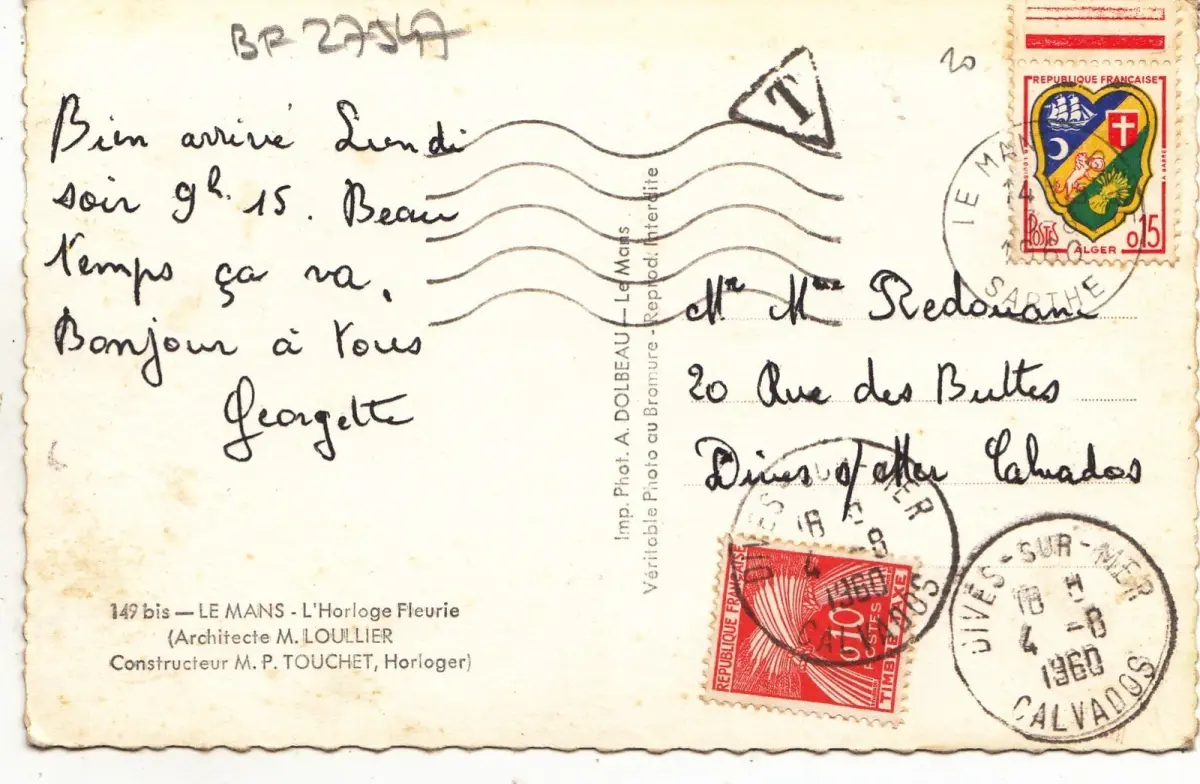 BF 2754A
20
T
REPUBLIQUE FRANÇAISE
POSTES
ALGER
0,15
LE MANS
14
1960
SARTHE
Bien arrivé Lundi
soir 9h. 15. Beau
temps ça va.
Bonjour à tous
Georgette
Imp. Phot. A. DOLBEAU — Le Mans
Véritable Photo au Bromure - Reprod. Interdite
Mr Mme Redouani
20 Rue des Buttes
Dives s/ Mer Calvados
DIVES-SUR-MER
18 H
4 -8
1960
CALVADOS
REPUBLIQUE FRANÇAISE
0,10
POSTES
TIMBRE TAXE
DIVES-SUR-MER
18 H
4 -8
1960
CALVADOS
149 bis — LE MANS - L'Horloge Fleurie
(Architecte M. LOULLIER
Constructeur M. P. TOUCHET, Horloger)